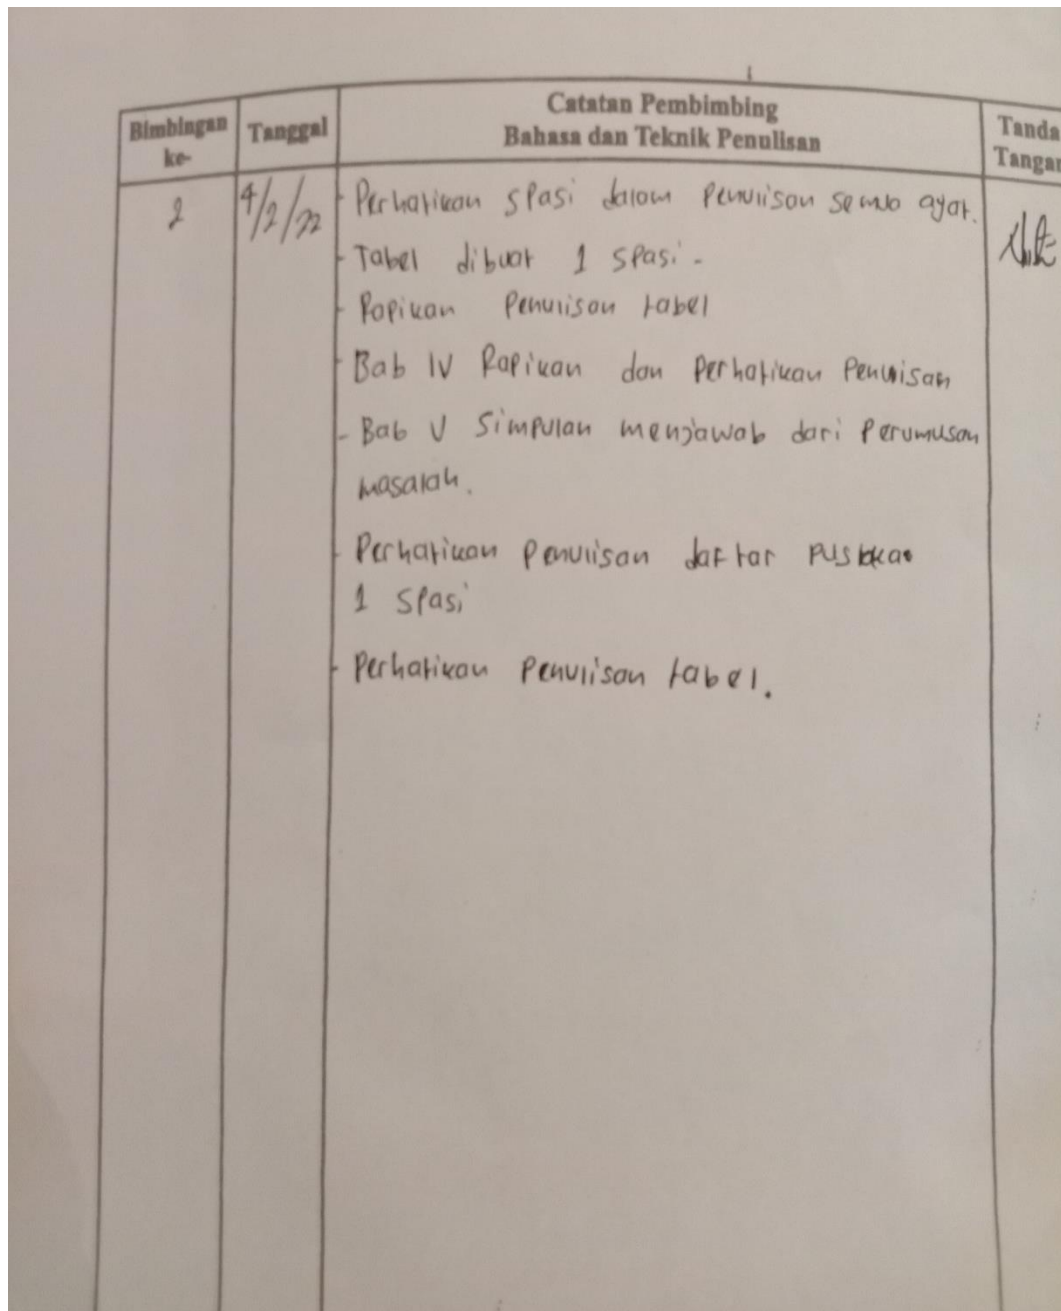 Bimbingan ke-
Tanggal
Catatan Pembimbing
Bahasa dan Teknik Penulisan
Tanda Tangan
2
4/2/22
- Perhatikan spasi dalam penulisan semua ayat.
- Tabel dibuat 1 spasi.
- Rapikan Penulisan tabel
- Bab IV Rapikan dan Perhatikan Penulisan
- Bab V Simpulan menjawab dari Perumusan
masalah.
- Perhatikan Penulisan daftar pustaka
1 spasi
- Perhatikan Penulisan tabel.